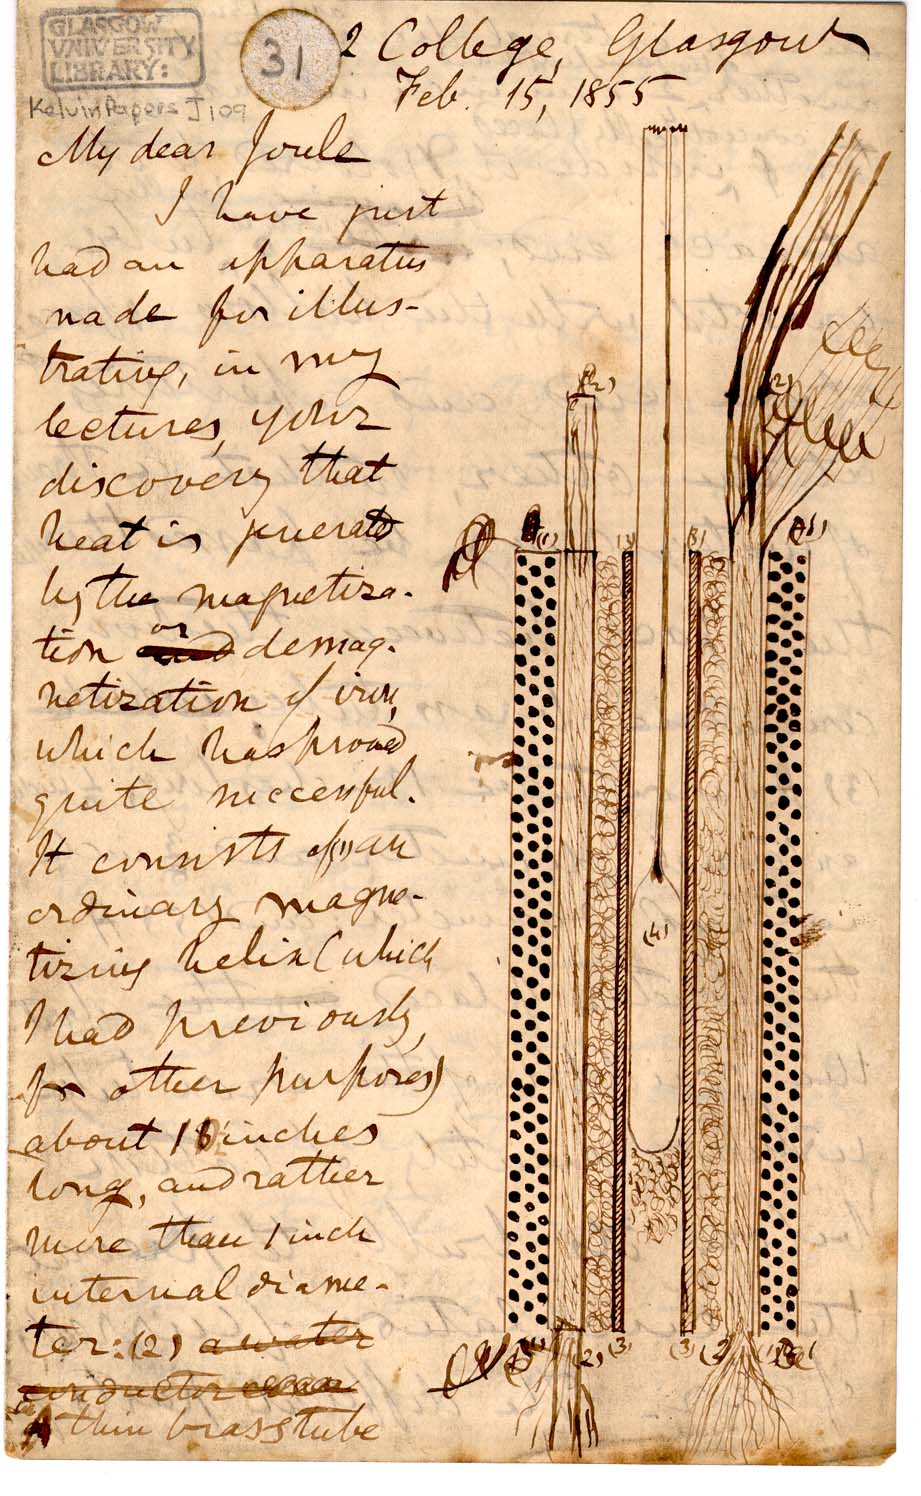 GLASGOW
UNIVERSITY
LIBRARY:
31
Kelvin Papers J109
2 College, Glasgow
Feb. 15, 1855
My dear Joule
I have just
had an apparatus
made for illus-
trating, in my
lectures, your
discovery that
heat is generated
by the magnetiza-
tion or demag-
netization of iron,
which has proved
quite successful.
It consists of (1) an
ordinary magne-
tizing helix (which
I had previously,
for other purposes)
about 18 inches
long, and rather
more than 1 inch
internal diame-
ter: (2) a water
conductor
A thin brass tube
(2)
(2)
(1)
(3)
(3)
(1)
(4)
(1)
(2)
(3)
(3)
(2)
(1)